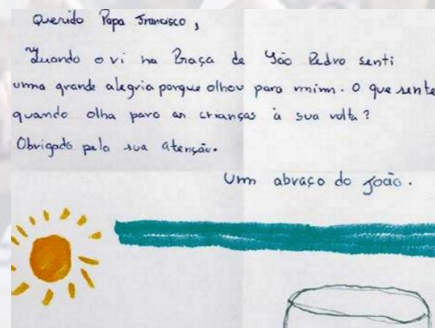 Querido Papa Francisco,
Quando o vi na Praça de São Pedro senti
uma grande alegria porque olhou para mim. O que sente
quando olha para as crianças à sua volta?
Obrigado pela sua atenção.
Um abraço do João.